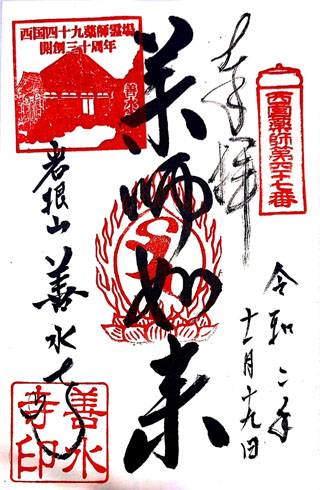 奉拝
西国薬師第四十七番
令和二年
十一月十九日
薬師如来
西国四十九薬師霊場
開創三十周年
善水寺
岩根山
善水寺
善水
寺印